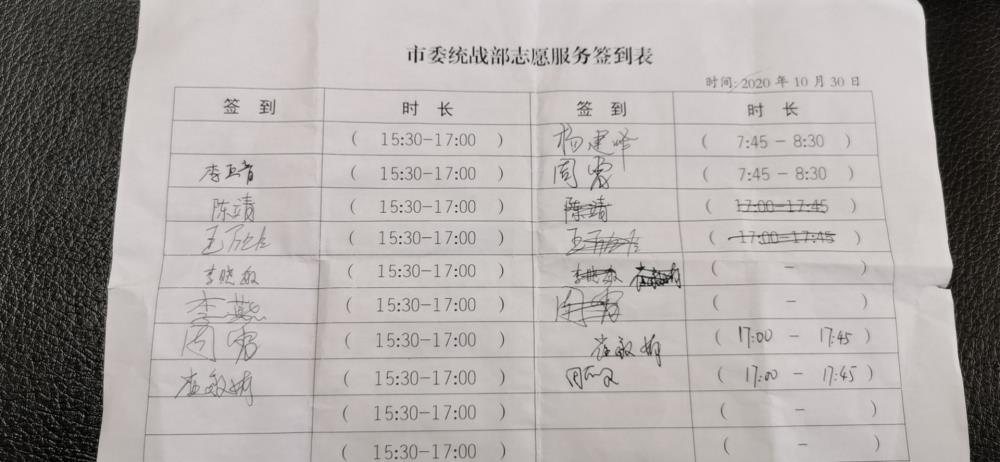 市委统战部志愿服务签到表
时间: 2020 年 10 月 30 日
签 到 时 长 签 到 时 长
( 15:30-17:00 ) 杨建峰 ( 7:45 - 8:30 )
( 15:30-17:00 ) 周雷 ( 7:45 - 8:30 )
陈靖 ( 15:30-17:00 ) 陈靖 ( 17:00-17:45 )
( 15:30-17:00 ) ( 17:00-17:45 )
李晓敏 ( 15:30-17:00 ) 李晓敏 ( - )
李 ( 15:30-17:00 ) 周雷 ( - )
周雷 ( 15:30-17:00 ) 崔敏娟 ( 17:00 - 17:45 )
崔敏娟 ( 15:30-17:00 ) ( 17:00 - 17:45 )
( 15:30-17:00 ) ( - )
( 15:30-17:00 ) ( - )